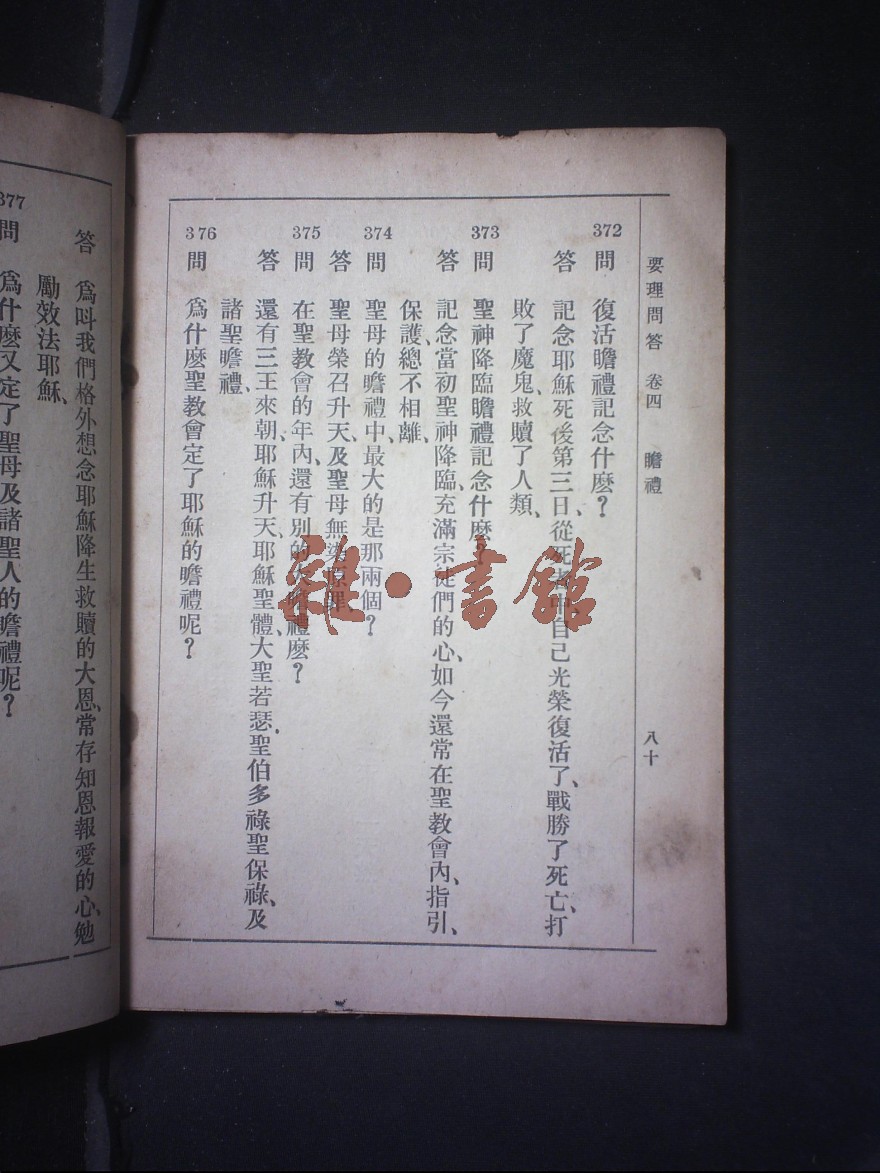 要理問答 卷四 瞻禮 八十
372 問 復活瞻禮記念什麼?
答 記念耶穌死後第三日、從死者中、自己光榮復活了、戰勝了死亡、打
敗了魔鬼、救贖了人類、
373 問 聖神降臨瞻禮記念什麼?
答 記念當初聖神降臨、充滿宗徒們的心、如今還常在聖教會內、指引、
保護、總不相離、
374 問 聖母的瞻禮中、最大的是那兩個?
答 聖母榮召升天、及聖母無染原罪
375 問 在聖教會的年內、還有別的大瞻禮麼?
答 還有三王來朝、耶穌升天、耶穌聖體、大聖若瑟、聖伯多祿聖保祿、及
諸聖瞻禮、
376 問 爲什麼聖教會定了耶穌的瞻禮呢?
答 爲叫我們格外想念耶穌降生救贖的大恩、常存知恩報愛的心、勉
勵效法耶穌、
377 問 爲什麼又定了聖母及諸聖人的瞻禮呢?
雜·書館